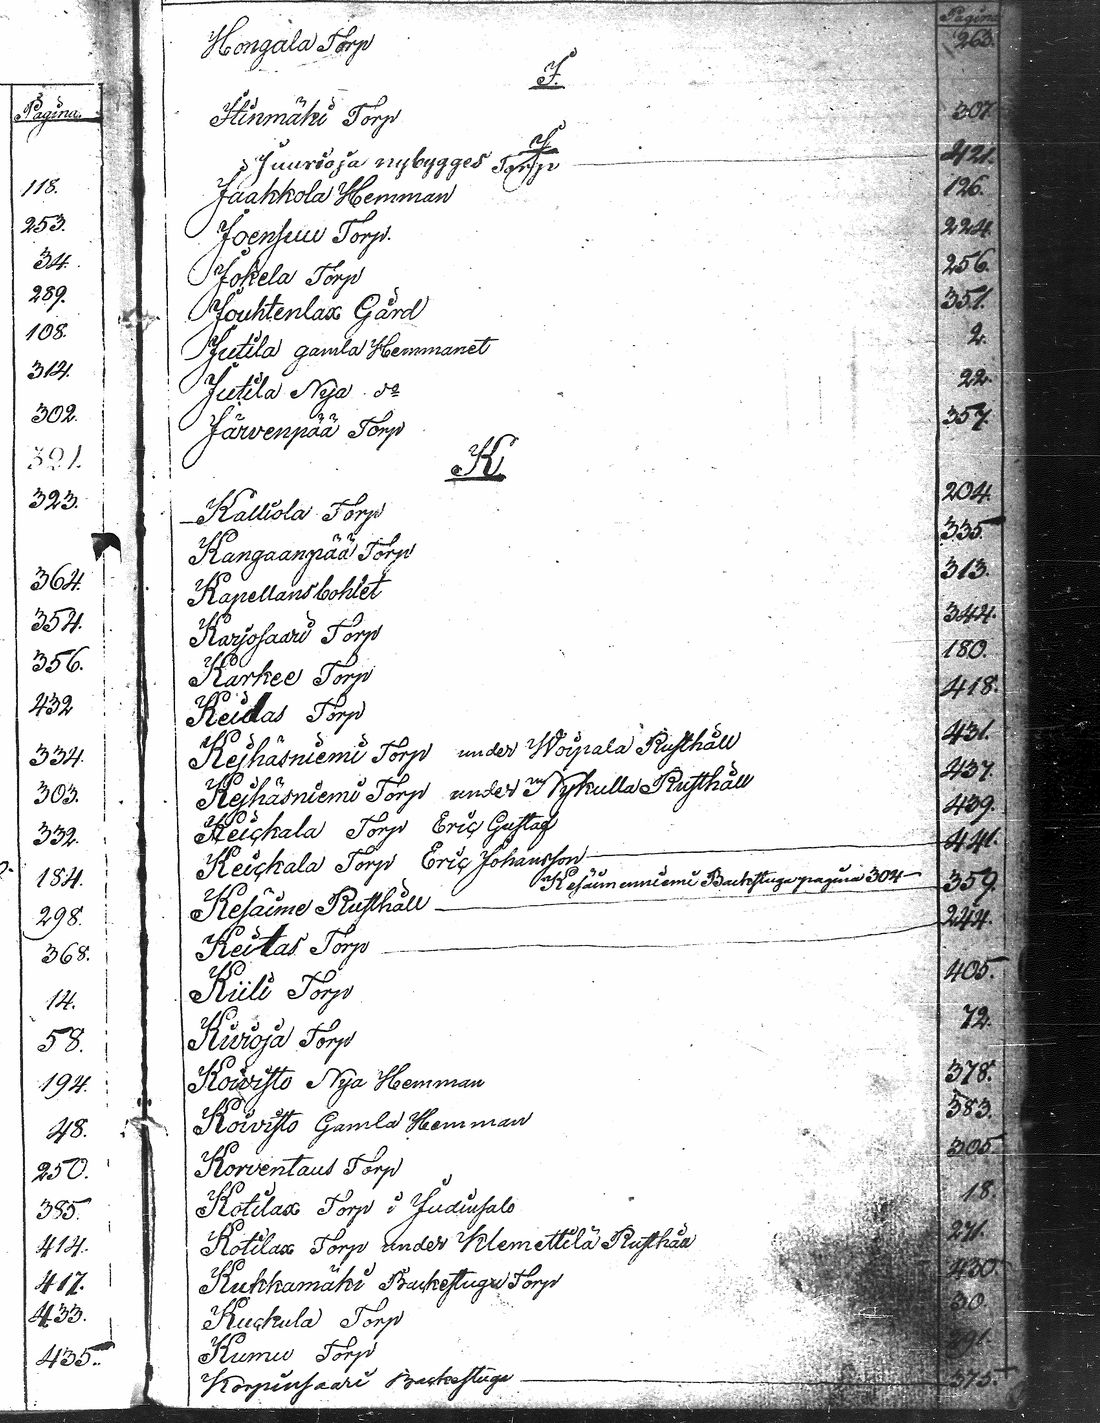 Pagina.
118.
253.
34.
289.
108.
314.
302.
321.
323.
364.
354.
356.
432
334.
303.
332.
184.
298.
368.
14.
58.
194.
48.
250.
385.
414.
417.
433.
435.
Pagina
Hongala Torp 263.
I.
Iinmäki Torp 307.
J
Juurioja nybygges Torp 421.
Jaakkola Hemman 126.
Joensuu Torp. 224.
Jokela Torp 256.
Jouhtenlax Gård 351.
Jutila gamla Hemmanet 2.
Jutila Nya do 22.
Järvenpää Torp 357.
K
Kalliola Torp 204.
Kangaanpää Torp 335.
Kapellansbohlet 313.
Karjosaari Torp 344.
Karkee Torp 180.
Keidas Torp 418.
Kejhäsniemi Torp under Woipala Rusthåll 431.
Kejhäsniemi Torp under Nykulla Rusthåll 437.
Keickala Torp Eric Gustaf 439.
Keickala Torp Eric Johansson 441.
Kesäimenniemi Backstuga pagina 304
Kesäime Rusthåll 359.
Keitas Torp 244.
Kiili Torp 405.
Kivioja Torp 72.
Koivisto Nya Hemman 378.
Koivisto Gamla Hemman 383.
Korventaus Torp 305.
Kotilax Torp i Judinsalo 18.
Kotilax Torp under Klemettilä Rusthåll 271.
Kukkamäki Backstugu Torp 430.
Kuckula Torp 30.
Kumu Torp 291.
Korpinsaari Backstuga 375.